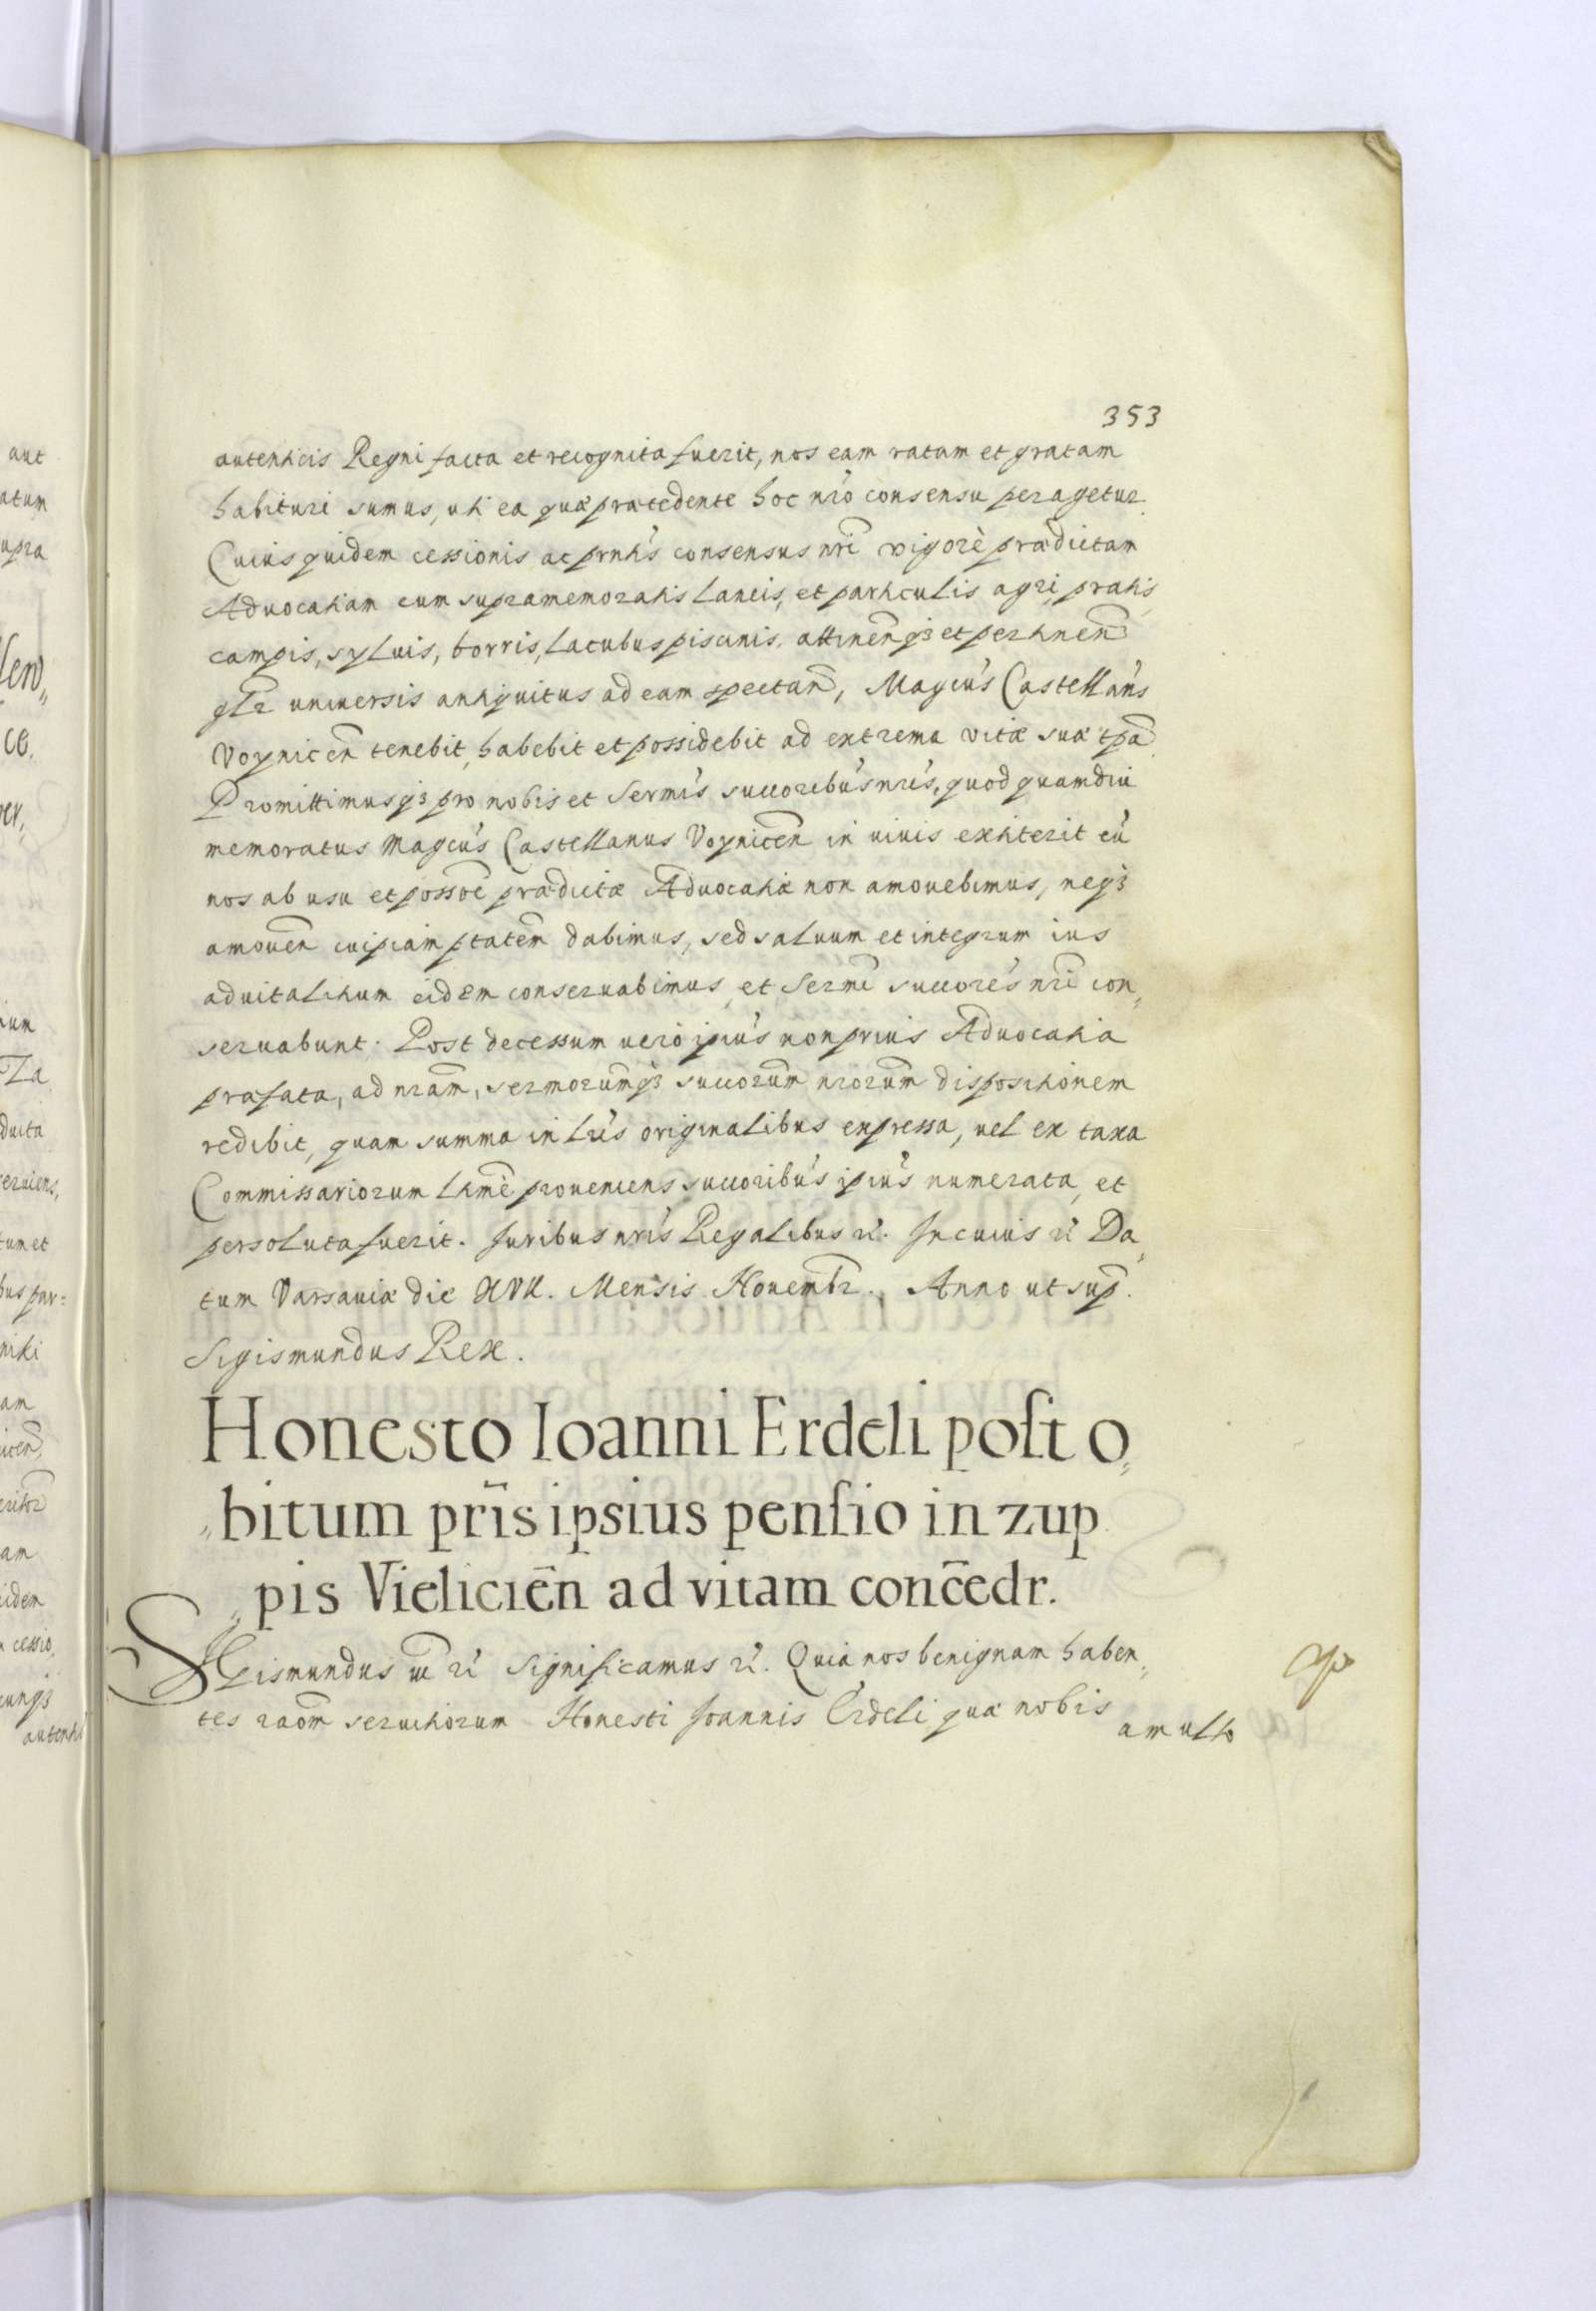 353
autenticis Regni facta et recognita fuerit, nos eam ratam et gratam
habituri sumus, uti ea quæ præcedente hoc nrô consensu peragetur.
Cuius quidem cessionis ac prntis consensus nrĩ vigorè prædictam
Aduocatiam cum supramemoratis Laneis, et particulis agri, pratis,
campis, syluis, borris, Lacubus piscinis, attinen̄ q3 et pertinen̄
gr̃lr universis antiquitus ad eam spectañ, Magcus Castellan̄s
Voynicen̄ tenebit, habebit et possidebit ad extrema vitæ suæ tpã
Promittimusq3 pro nobis et Sermis succoribus nris, quod quamdiu
memoratus Magcus Castellanus Voynicen̄ in viuis extiterit eũ
nos ab usu et possoẽ prædictæ Aduocatiæ non amouebimus, neq3
amouen̄ cuipiam ptatem̃ dabimus, sed saluum et integrum ius
aduitalitium eidem conseruabimus, et Sermi succores nrĩ con„
seruabunt. Post decessum uerò ipius non prius Aduocatia
præfata, ad nram̃, sermorumq3 succorum̃ nrorum̃ dispositionem
redibit, quam summa in Lris originalibus expressa, uel ex taxa
Commissariorum Ltimè proueniens succoribus ipius numerata, et
persoluta fuerit. Juribus nris Regalibus rc. In cuius rc Da„
tum Varsauiæ die XVII. Mensis Nouembr. Anno ut sup.
Sigismundus Rex.
Honesto Ioanni Erdeli post o„
„bitum prĩs ipsius pensio in zup
„pis Vieliciēn ad vitam conc̄edr.
SIGismundus ut rc Significamus rc. Quia nos benignam haben„
tes raõm seruitiorum Honesti Joannis Erdeli quæ nobis
a multo